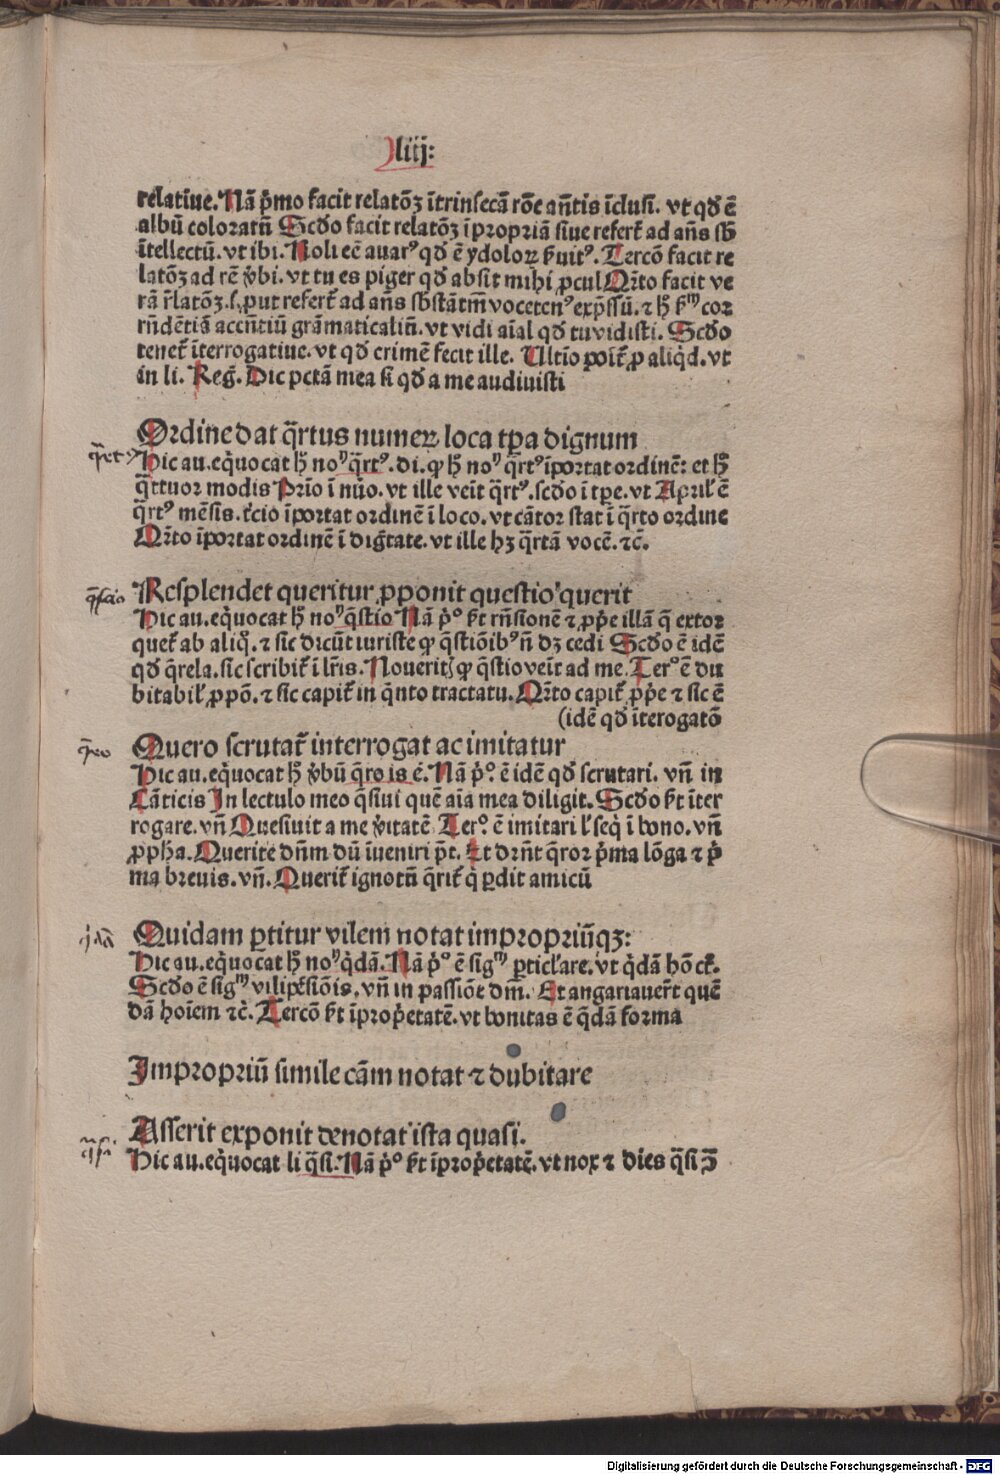 liij:
relatiue. Nā p̄mo facit relatōꝫ ītrinsecā rōe an̄tis īclusi. vt qd̄ ē
albū coloratū Scd̄o facit relatōꝫ īpropriā siue refert̄ ad an̄s sb̄
ītellectū. vt ibi. Noli eē auarꝰ qd̄ ē ydoloꝝ ẜuitꝰ. Tercō facit re
latōꝫ ad rē v̄bi. vt tu es piger qd̄ absit mihi ꝓcul Qr̄to facit ve
rā r̄latōꝫ .s. ꝓut refert̄ ad an̄s sb̄stātīū voceten̄ꝰ exp̄ssū. ⁊ hꝫ
rn̄dētiā accn̄tiū grāmaticaliū. vt vidi aīal qd̄ tu vidisti. Scd̄o
tenet̄ īterrogatiue. vt qd̄ crimē fecit ille. Ultīo poīt̄ ꝓ aliqd̄. vt
in li. Reḡ. Dic pctā mea si qd̄ a me audiuisti
Ordine dat q̄rtus numeꝝ loca tp̄a dignum
q̄rtꝰ
Hic au. eq̄uocat h̄ noᵐ q̄rtꝰ. di. ꝙ h̄ noᵐ q̄rtꝰ īportat ordinē: et hꝫ
q̄ttuor modis Prīo ī nūo. vt ille veīt q̄rtꝰ. scd̄o ī tp̄e. vt April̄ ē
q̄rtꝰ mēsis. t̄cio īportat ordinē ī loco. vt cātor stat ī q̄rto ordine
Qr̄to īportat ordinē ī diḡtate. vt ille hꝫ q̄rtā vocē. ⁊c̄.
Resplendet queritur ꝓponit questio querit
q̄stio
Hic au. eq̄uocat h̄ noᵐ q̄stio Nā p̄ᵒ ẜt rn̄sionē ⁊ ꝓp̄e illā q̄ extor
quet̄ ab aliq̊. ⁊ sic dicūt iuriste ꝙ q̄stiōibꝰ n̄ dꝫ cedi Scd̄o ē idē
qd̄ q̄rela. sic scribit̄ ī lr̄is. Noueritꝭ ꝙ q̄stio veīt ad me. Terᵒ ē du
bitabil̄ ꝓpō. ⁊ sic capit̄ in q̄nto tractatu. Qr̄to capit̄ ꝓp̄e ⁊ sic ē
(idē qd̄ īterogatō
Quero scrutat̄ interrogat ac imitatur
q̄ro
Hic au. eq̄uocat h̄ v̄bū q̄ro is ē. Nā p̄ᵒ. ē idē qd̄ scrutari. vn̄ in
Cāticis In lectulo meo q̄siui quē aīa mea diligit. Scd̄o ẜt īter
rogare. vn̄ Quesiuit a me v̄itatē Terᵒ. ē imitari l̄ seq̄ ī bono. vn̄
ꝓpha. Querite dn̄m dū īueniri p̄t. Et dr̄nt q̄ror p̄ma lōga ⁊ p̄
ma breuis. vn̄. Querit̄ ignotū q̄rit̄ q̄ ꝑdit amicū
Quidam ꝑtitur vilem notat impropriūqꝫ:
q̄dā
Hic au. eq̄uocat h̄ noᵐ q̄dā. Nā p̄ᵒ ē sigᵐ ꝑticl̄are. vt q̄dā hō
Scd̄o ē sigᵐ vilip̄ēsiōis. vn̄ in passiōe dn̄i. Et angariauer̄t quē
dā hoīem ⁊c̄. Tercō ẜt īprop̄etatē. vt bonitas ē q̄dā forma
Impropriū simile cām notat ⁊ dubitare
Asserit exponit denotat ista quasi.
q̄si
Hic au. eq̄uocat li q̄si. Nā p̄ᵒ ẜt īprop̄etatē. vt nox ⁊ dies q̄si
Digitalisierung gefördert durch die Deutsche Forschungsgemeinschaft - DFG